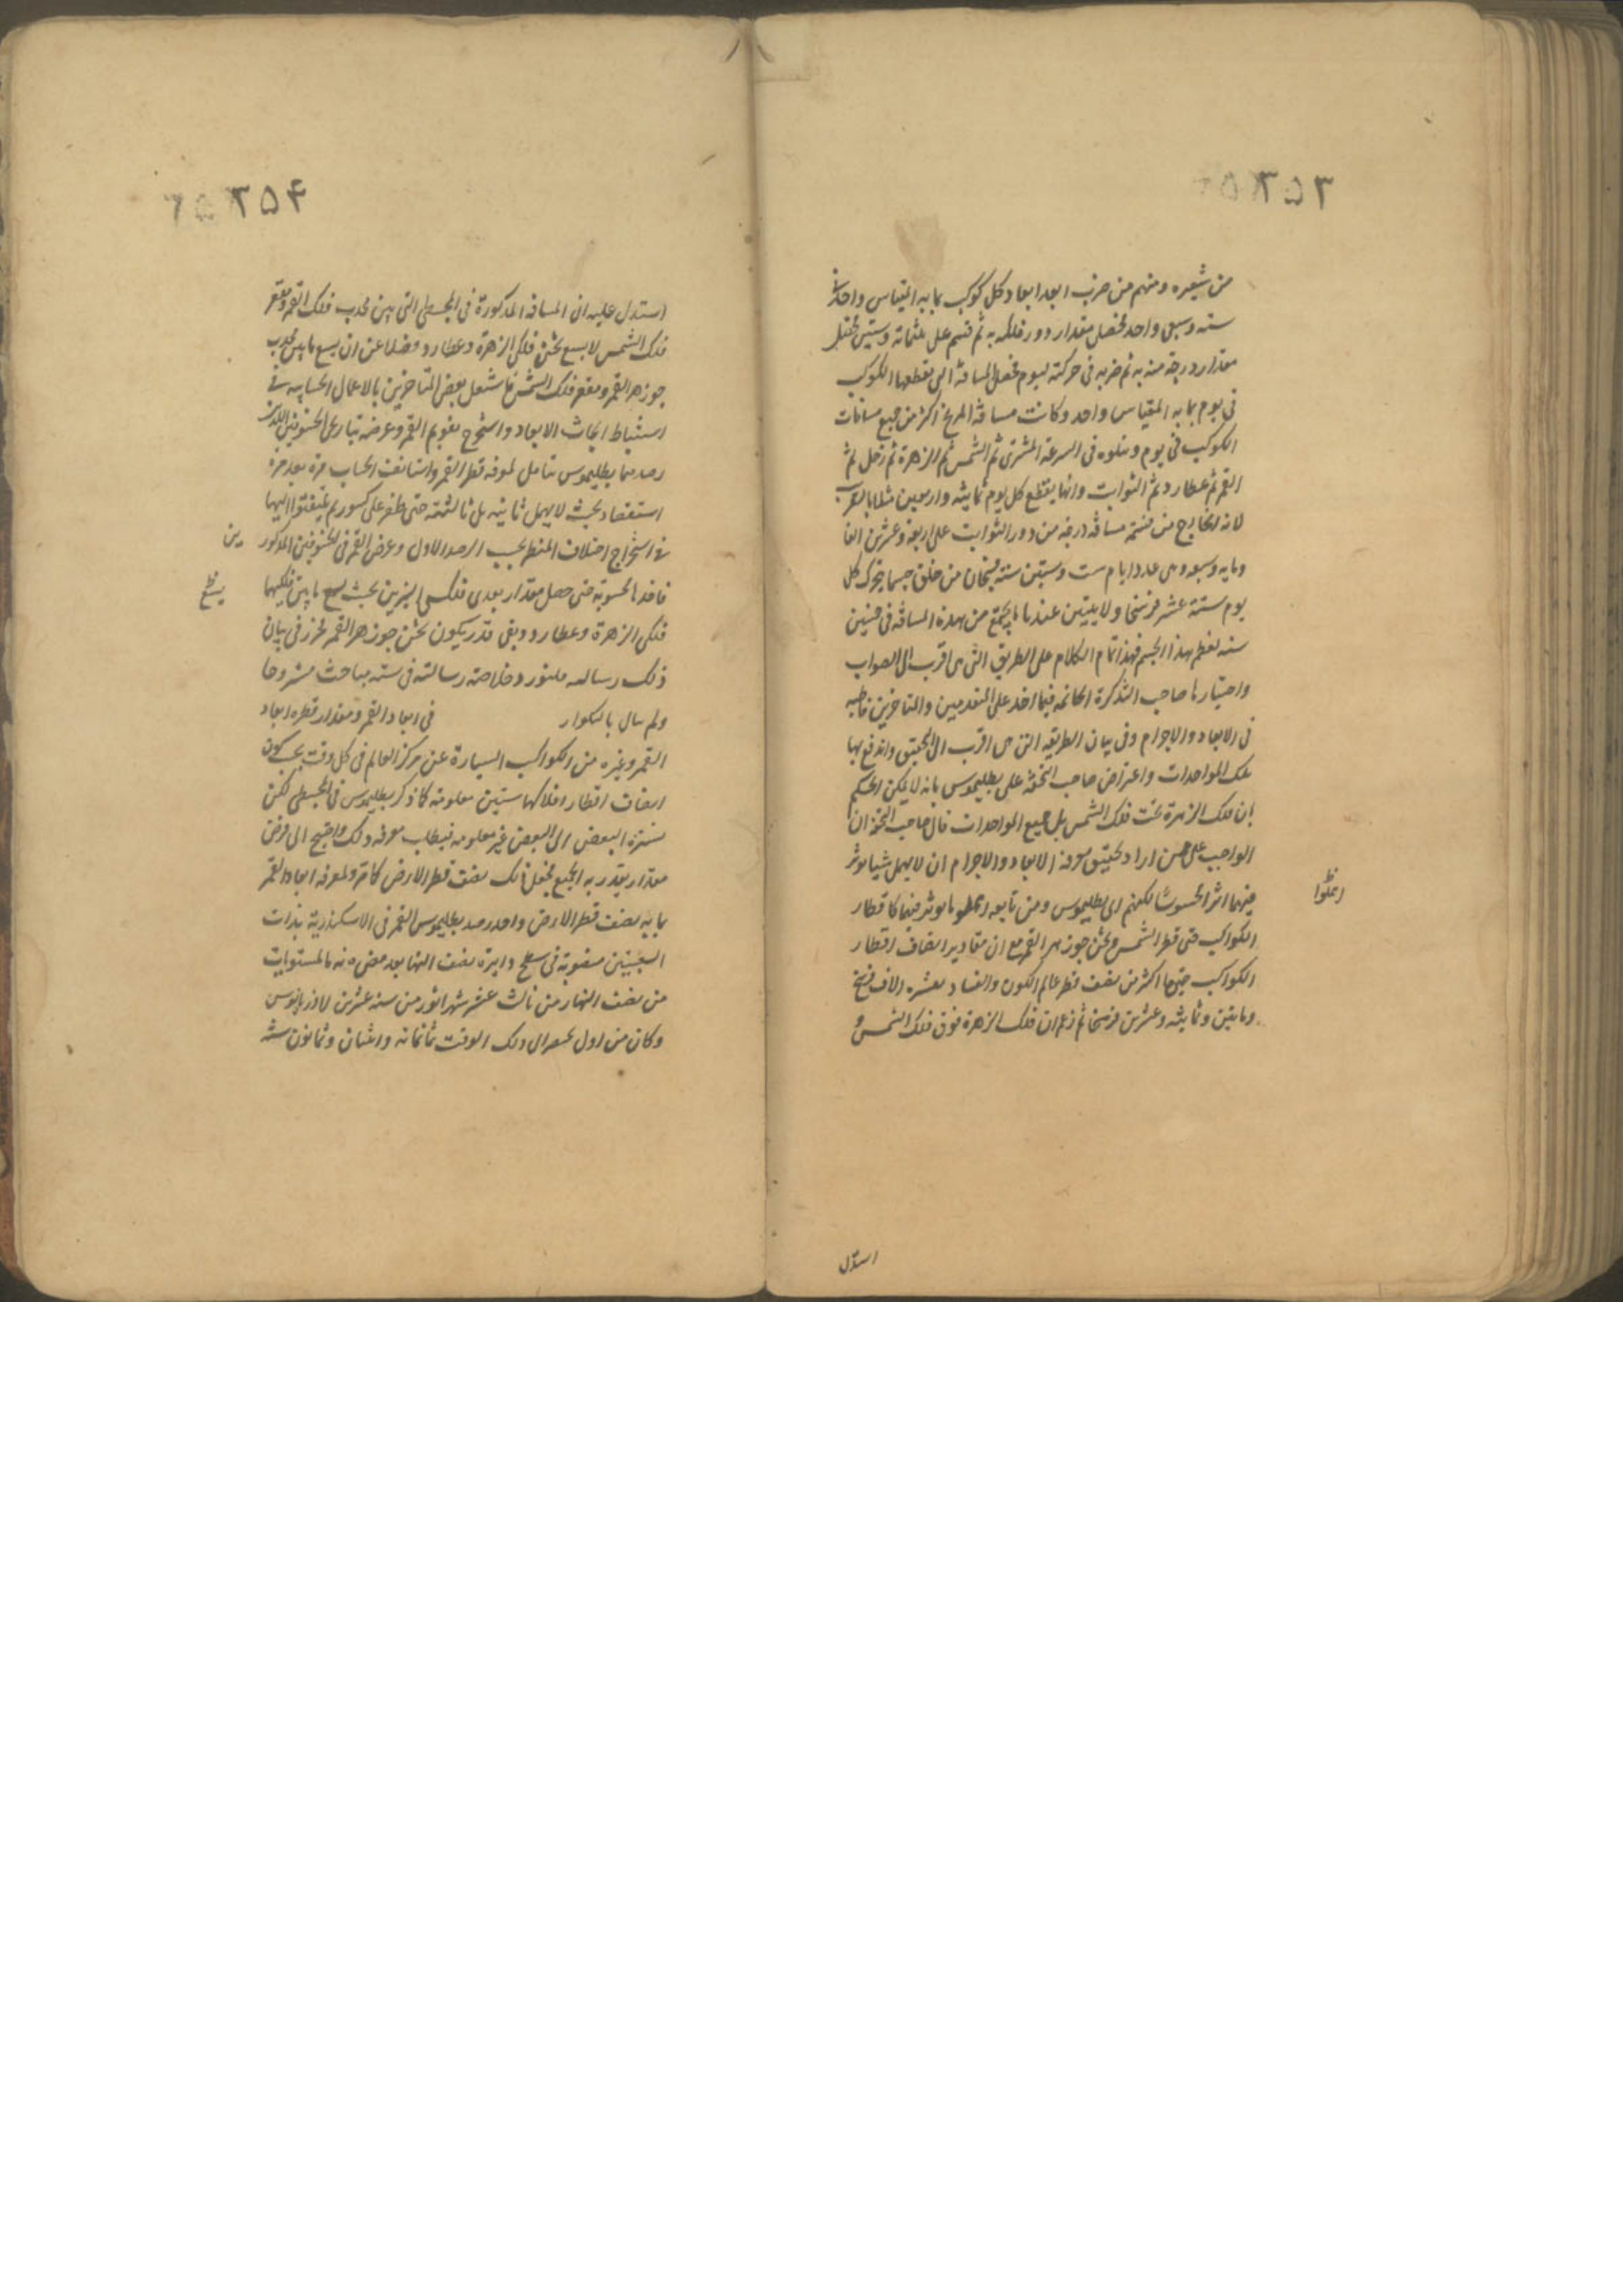 ٣٥٣
من شعيره ومنهم من ضرب ابعد ابعاد كل كوكب بما به المقياس واحد فى
ستة وسبع واحد فحصل مقدار دور فلكه به ثم قسم على ثلثمائة وستين فحصل
مقدار درجة منه به ثم ضربه فى حركته ليوم فحصل المسافة التى يقطعها الكوكب
فى يوم بما به المقياس واحد وكانت مسافة المريخ اكثر من جميع مسافات
الكوكب فى يوم ويتلوه فى السرعة المشترى ثم الشمس ثم الزهرة ثم زحل ثم
القمر ثم عطارد ثم الثوابت وانها يقطع كل يوم ثمانية واربعين مثلا بالتقريب
لانه الخارج من قسمة مسافة درجة من دور الثوابت على اربعة وعشرين الفا
ومايه وسبعة وهى عدد ايام ست وستين سنة فسبحان من خلق جسما يتحرك كل
يوم ستة عشر فرسخا ولا يتبين عندنا ما يجتمع من هذه المسافة فى خمسين
سنة لعظم هذا الجسم فهذا تمام الكلام على الطريق التى هى اقرب الى الصواب
واختيارها صاحب التذكرة الخاتمة فيما اخذ على المتقدمين والمتاخرين قاطبة
فى الابعاد والاجرام وفى بيان الطريقة التى هى اقرب الى التحقيق واندفع بها
تلك المواخذات واعتراض صاحب التحفة على بطليموس بانه لا يمكن الحكم
بان فلك الزهرة تحت فلك الشمس بل جميع المواخذات قال صاحب التحفة ان
الواجب على من اراد تحقيق معرفة الابعاد والاجرام ان لا يهمل شيا يوثر
فيهما اثرا محسوسا لكنهم اى بطليموس ومن تابعه اهملوا ما يوثر فيها كاقطار
اهملوا
الكواكب حتى قطر الشمس وثخن جوزهر القمر مع ان مقادير انصاف اقطار
الكواكب جميعا اكثر من نصف قطر عالم الكون والفساد بعشرة الاف فرسخ
ومايتين وثمانية وعشرين فرسخا ثم زعم ان فلك الزهرة فوق فلك الشمس و
استدل
٣٥۴
استدل عليه ان المسافة المذكورة فى المجسطى التى بين محدب فلك القمر ومقعر
فلك الشمس لا يسع ثخن فلكى الزهرة وعطارد فضلا عن ان يسع ما بين محدب
جوزهر القمر ومقعر فلك الشمس فاشتغل بعض المتاخرين بالاعمال الحسابيه فى
استنباط ابحاث الابعاد واستخرج تقويم القمر وعرضه بتاريخى الخسوفين اللذين
رصدهما بطليموس بتامل لمعرفة قطر القمر واستانفت الحساب مرة بعد مرة
استقصاء بحيث لا يهمل ثانية بل ثالثة حتى ظفر على كسور لم يلتفتوا اليها
فى استخراج اختلاف المنظر بحسب الرصد الاول وعرض القمر فى الخسوفين المذكور
ين
فاخذ المحسوبة حتى حصل مقدار بعدى فلكى النيرين بحيث يسع ما بين فلكيهما
فلكى الزهرة وعطارد ويبقى قدر يكون ثخن جوزهر القمر فحرر فى بيان
ذلك رسالة وخلاصة رسالته فى ستة مباحث مشروحا
فى ابعاد القمر ومقدار قطره ابعاد
القمر وغيره من الكواكب السيارة عن مركز العالم فى كل وقت بحسب كون
انصاف اقطار افلاكها ستين معلومة كما ذكر بطليموس فى المجسطى لكن
نسبة البعض الى البعض غير معلومة فبطلب معرفة ذلك واحتيج الى فرض
مقدار يقدر به الجميع فجعل ذلك نصف قطر الارض كما مر ولمعرفة ابعاد القمر
بما به نصف قطر الارض واحد رصد بطليموس القمر فى الاسكندرية بذات
الشعبتين منصوبة فى سطح دايرة نصف النهار بعد مضى
من نصف النهار من ثالث عشر شهر اتور من سنة عشرين لاذريانوس
وكان من اول بختنصر الى ذلك الوقت ثمانمائة واثنان وثمانون سنة